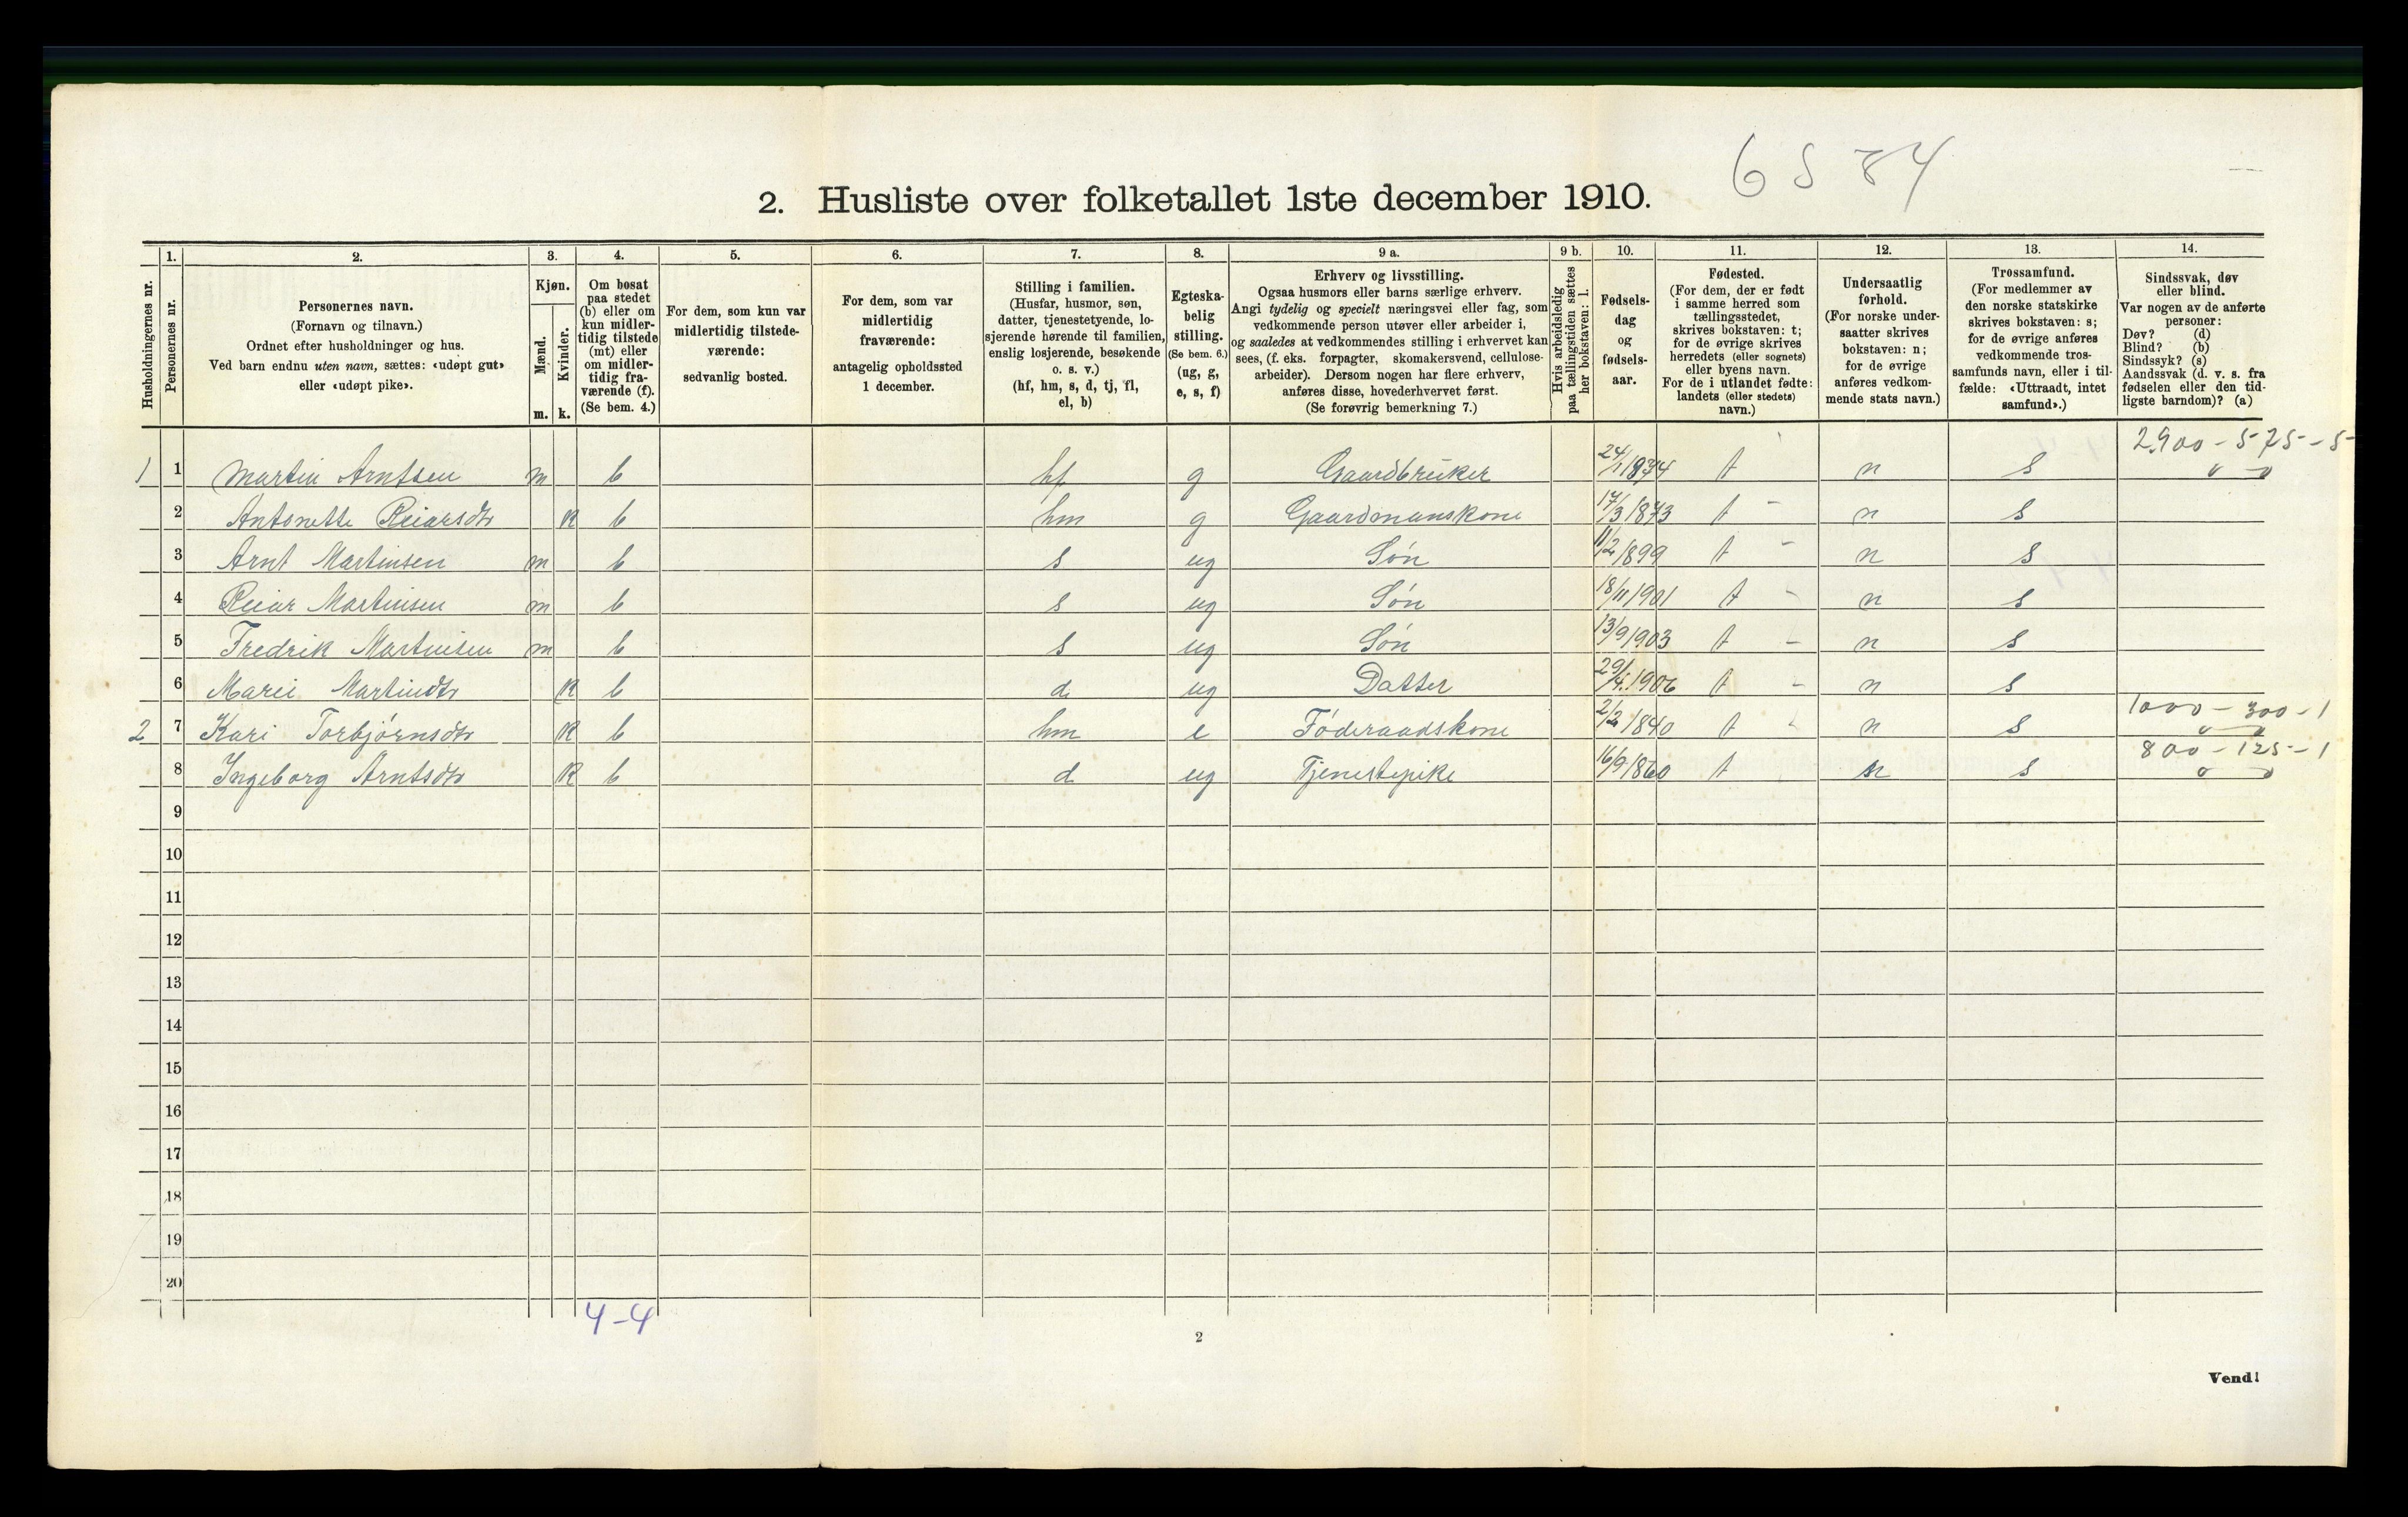 6 S 84
2. Husliste over folketallet 1ste december 1910.
Husholdningernes nr.
1. Personernes nr.
2. Personernes navn. (Fornavn og tilnavn.) Ordnet efter husholdninger og hus. Ved barn endnu uten navn, sættes: «udøpt gut» eller «udøpt pike».
3. Kjøn. Mænd. m. Kvinder. k.
4. Om bosat paa stedet (b) eller om kun midlertidig tilstede (mt) eller om midlertidig fraværende (f). (Se bem. 4.)
5. For dem, som kun var midlertidig tilstedeværende: sedvanlig bosted.
6. For dem, som var midlertidig fraværende: antagelig opholdssted 1 december.
7. Stilling i familien. (Husfar, husmor, søn, datter, tjenestetyende, losjerende hørende til familien, enslig losjerende, besøkende o. s. v.) (hf, hm, s, d, tj, fl, el, b)
8. Egteskabelig stilling. (Se bem. 6.) (ug, g, e, s, f)
9 a. Erhverv og livsstilling. Ogsaa husmors eller barns særlige erhverv. Angi tydelig og specielt næringsvei eller fag, som vedkommende person utøver eller arbeider i, og saaledes at vedkommendes stilling i erhvervet kan sees, (f. eks. forpagter, skomakersvend, cellulosearbeider). Dersom nogen har flere erhverv, anføres disse, hovederhvervet først. (Se forøvrig bemerkning 7.)
9 b. Hvis arbeidsledig paa tællingstiden sættes her bokstaven: l.
10. Fødselsdag og fødselsaar.
11. Fødested. (For dem, der er født i samme herred som tællingsstedet, skrives bokstaven: t; for de øvrige skrives herredets (eller sognets) eller byens navn. For de i utlandet fødte: landets (eller stedets) navn.)
12. Undersaatlig forhold. (For norske undersaatter skrives bokstaven: n; for de øvrige anføres vedkommende stats navn.)
13. Trossamfund. (For medlemmer av den norske statskirke skrives bokstaven: s; for de øvrige anføres vedkommende trossamfunds navn, eller i tilfælde: «Uttraadt, intet samfund».)
14. Sindssvak, døv eller blind. Var nogen av de anførte personer: Døv? (d) Blind? (b) Sindssyk? (s) Aandssvak (d. v. s. fra fødselen eller den tidligste barndom)? (a)
2900 - 575 - 5
1 1 Martin Arntsen m b hf g Gaardbruker 24/1 1874 t n s
2 Antonette Reiarsdtr k b hm g Gaardmanskone 17/3 1873 t - n s
3 Arnt Martinsen m b s ug Søn 11/2 1899 t - n s
4 Reiar Martinsen m b s ug Søn 18/11 1901 t - n s
5 Fredrik Martinsen m b s ug Søn 13/9 1903 t - n s
6 Marei Martindtr k b d ug Datter 29/4 1906 t - n s
1000 - 300 - 1
2 7 Kari Torbjørnsdtr k b hm e Føderaadskone 2/2 1840 t - n s
800 - 125 - 1
8 Ingeborg Arntsdtr k b d ug Tjenestepike 16/9 1860 t n s
9
10
11
12
13
14
15
16
17
18
19
20
4-4
2
Vend!